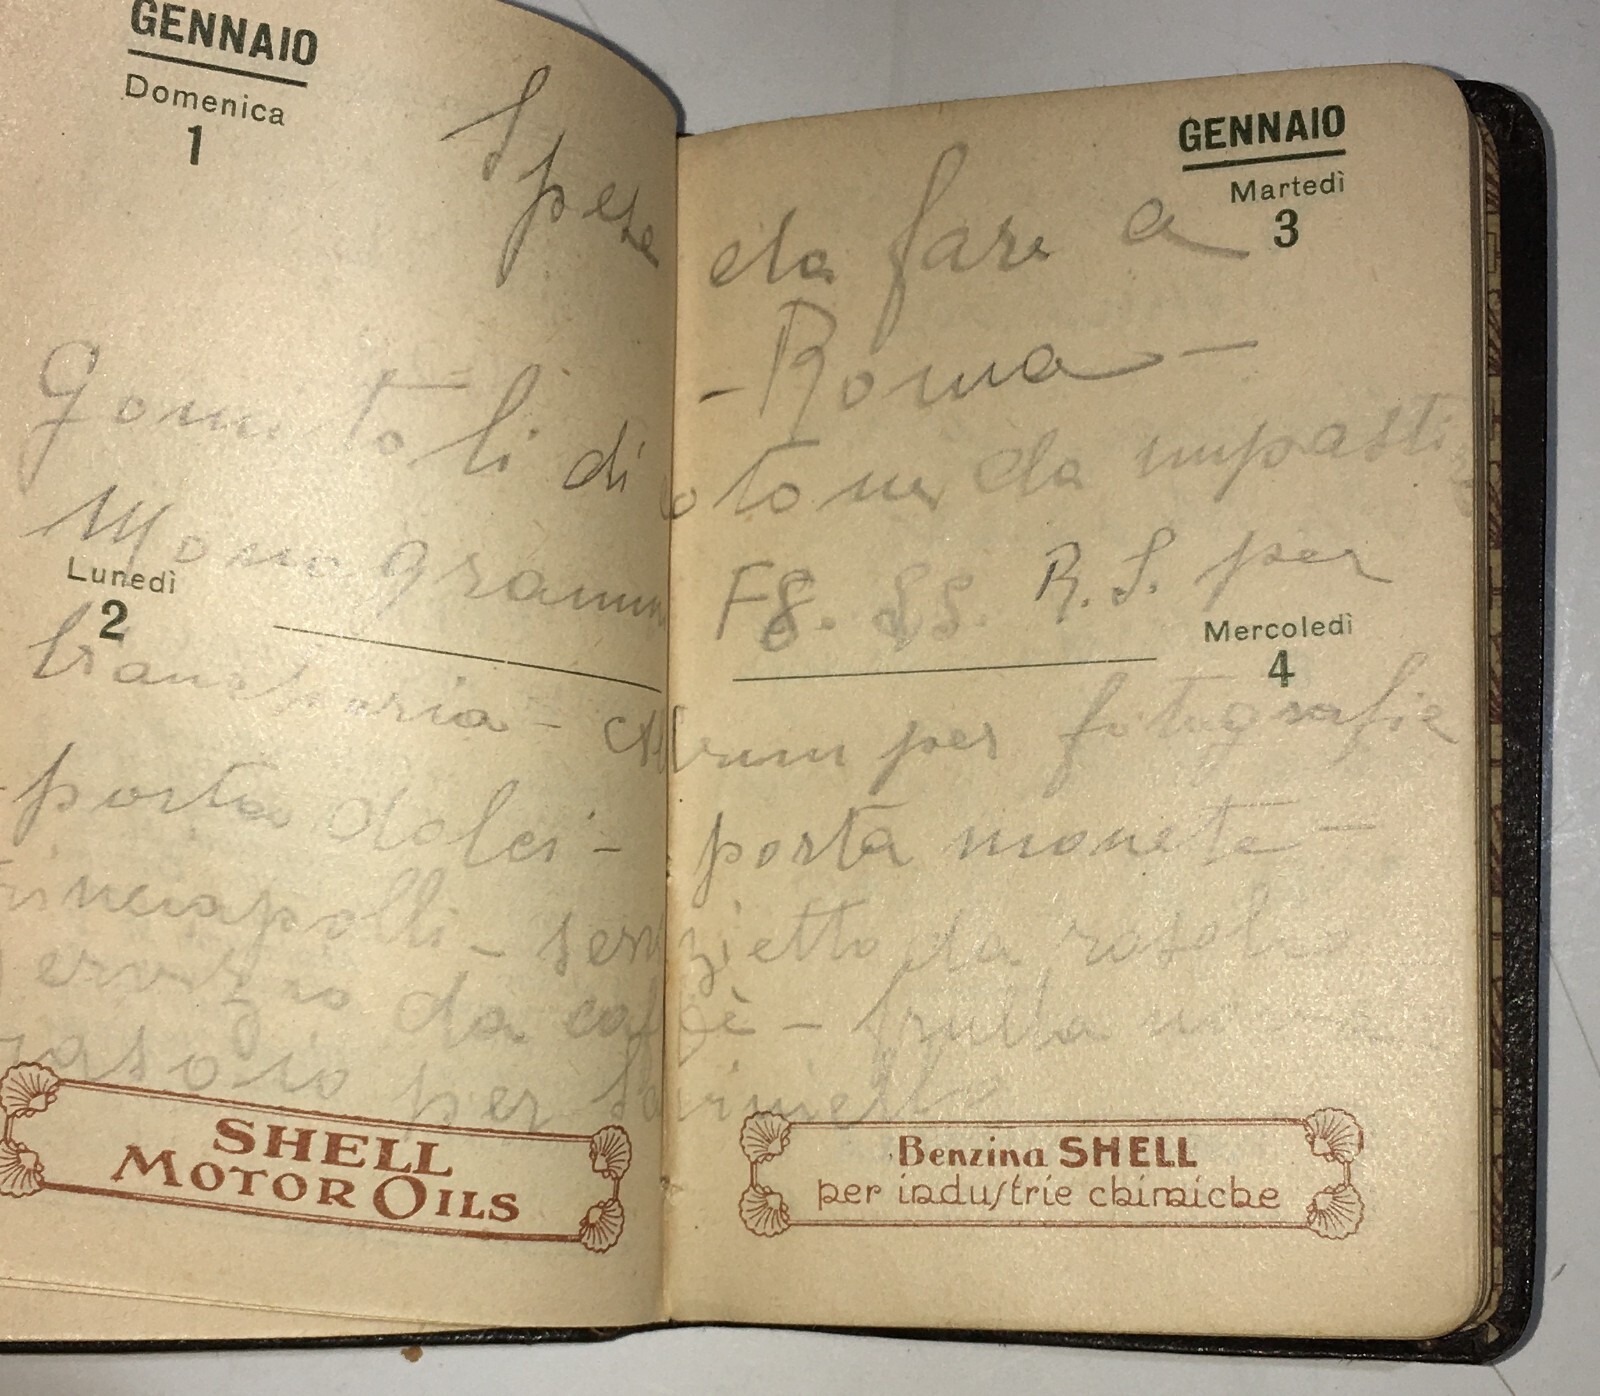 GENNAIO
Domenica
1
GENNAIO
Martedì
3
Spese da fare a
- Roma -
Gomitoli di cotone da impasti
Monogramm F8. SS. R. S. per
Lunedì
2
Mercoledì
4
biancheria - Album per fotografie
- porta dolci - porta monete -
Trinciapolli - servizietto da rosolio
Servizio da caffè - frulla uova
rasoio per
SHELL
MOTOR OILS
Benzina SHELL
per industrie chimiche